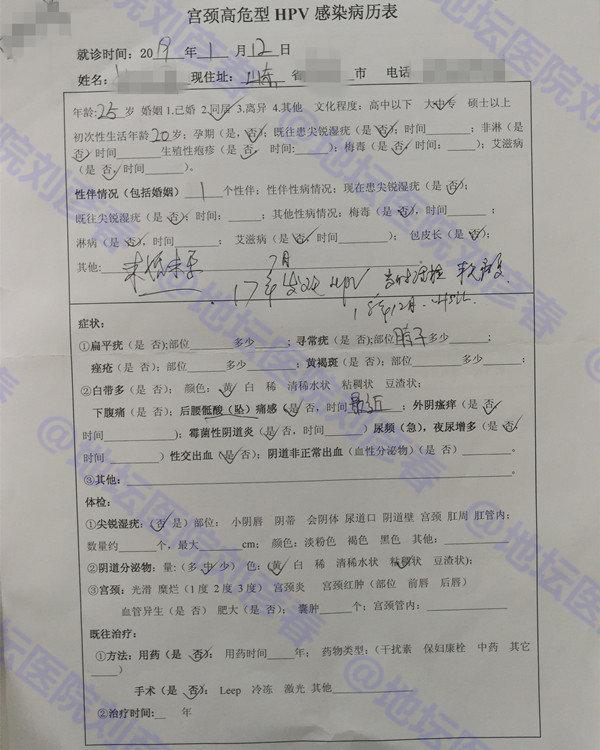 宫颈高危型 HPV 感染病历表
就诊时间：2019年1月12日
姓名： 现住址：山东省 市 电话
年龄：25岁 婚姻 1.已婚 2.同居 3.离异 4.其他 文化程度：高中以下 大中专 硕士以上
初次性生活年龄20岁；孕期（是，否）；既往患尖锐湿疣（是 否）；时间；非淋（是
否）时间 生殖性疱疹（是 否， 时间：）；梅毒（是 否，时间：）；艾滋病
（是 否，时间）。
性伴情况（包括婚姻）1个性伴；性伴性病情况；现在患尖锐湿疣（是 否）；
既往尖锐湿疣（是 否）；时间：；其他性病情况：梅毒（是 否），时间；
淋病（是 否），时间； 艾滋病（是 否，时间）； 包皮长（是 否）；
其他：
7月
17年发现HPV
18年12月
症状：
①扁平疣（是 否）；部位 多少； 寻常疣（是 否）；部位 多少；
痤疮（是 否）；部位 多少； 黄褐斑（是 否）：部位 多少；
②白带多（是 否）； 颜色：黄 白 稀 清稀水状 粘稠状 豆渣状；
下腹痛（是 否）；后腰骶酸（坠）痛感（是 否，时间最近；外阴瘙痒（是 否，
时间）；霉菌性阴道炎（是 否，时间）尿频（急），夜尿增多（是 否，
时间）性交出血（是 否）；阴道非正常出血（血性分泌物）（是 否）。
③其他：。
体检：
①尖锐湿疣：（否 是）部位： 小阴唇 阴蒂 会阴体 尿道口 阴道壁 宫颈 肛周 肛管内；
数量约个，最大cm； 颜色：淡粉色 褐色 黑色 其他：
②阴道分泌物：量：（多 中 少） 色：（黄 白 稀 清稀水状 粘稠状 豆渣状）；
③宫颈：光滑 糜烂（1度 2度 3度） 宫颈炎 宫颈红肿（部位 前唇 后唇）
血管异生（是 否） 肥大（是 否）； 囊肿个；宫颈管内：
既往治疗：
①方法：用药（是 否）： 用药时间年； 药物类型：（干扰素 保妇康栓 中药 其它
）
手术（是 否）： Leep 冷冻 激光 其他
②治疗时间： 年
@地坛医院刘春